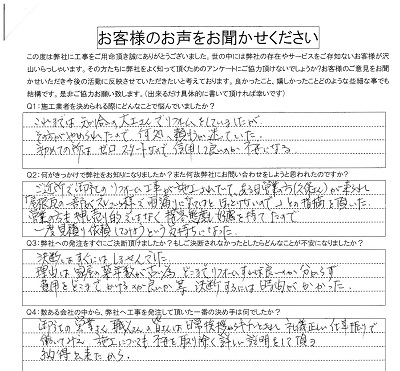 お客様のお声をお聞かせください
この度は弊社に工事をご用命頂き誠にありがとうございました。世の中には弊社の存在やサービスをご存知ないお客様が沢
山いらっしゃいます。その方たちに弊社をよく知って頂くためのアンケートにご協力頂けないでしょうか?お客様のご意見をお聞
かせいただき今後の活動に反映させていただきたいと考えております。良かったこと、嬉しかったことどのような些細な事でも
結構です。是非ご協力お願い致します。(出来るだけ具体的に書いて頂ければ幸いです)
Q1:施工業者を決められる際にどんなことで悩んでいましたか?
これまでは 知り合の大工さんでリフォームをしていましたが、
その方がやめられたので、何処に頼むか迷っていた。
初めての所は ゼロスタートなので信用して良いのか不安になる
Q2:何がきっかけで弊社をお知りになりましたか?また何故弊社にお問い合わせをしようと思われたのですか?
ご近所で御社のリフォーム工事が施工されてて、ある日営業の方(2名)が来られ
との指摘を頂いた。
営業の方も押し売り的ではなく接客態度も好感を持てたので
一度見積り依頼してみようという気持ちになった。
Q3:弊社への発注をすぐにご決断頂けましたか?もしご決断されなかったとしたらどんなことが不安になりましたか?
決断はすぐにはしませんでした。
理由は 家の築年数が古い為 どこまでリフォームすれば良いのか分からず
費用をどこまでかけるか良いか等 決断するには時間がかかった。
Q4:数ある会社の中から、弊社へ工事を発注して頂いた一番の決め手は何でしたか?
御社の営業さん、職人さんの皆さんは日常挨拶からキチンとされ 礼儀正しい仕事振りで
働いており、施工についても不安を取り除く詳しい説明をして頂き
納得出来たから。